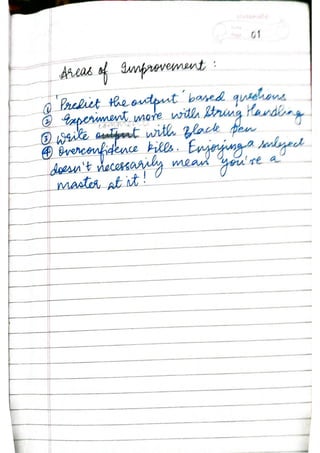 01
Areas of Improvement :
① 'Predict the output' based questions
② Experiment more with String Handling
③ Write output with Black pen
④ Overconfidence kills. Enjoying a subject
doesn't necessarily mean you're a
master at it!